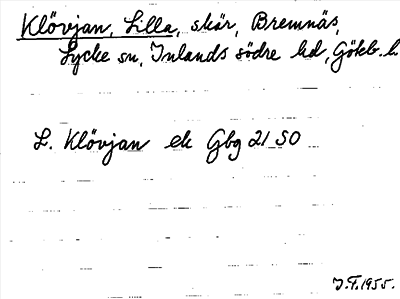 Klövjan, Lilla, skär, Bremnäs,
Lycke sn, Inlands södre hd, Göteb. l.
L. Klövjan ek Gbg 21 SO
J.F. 1955.